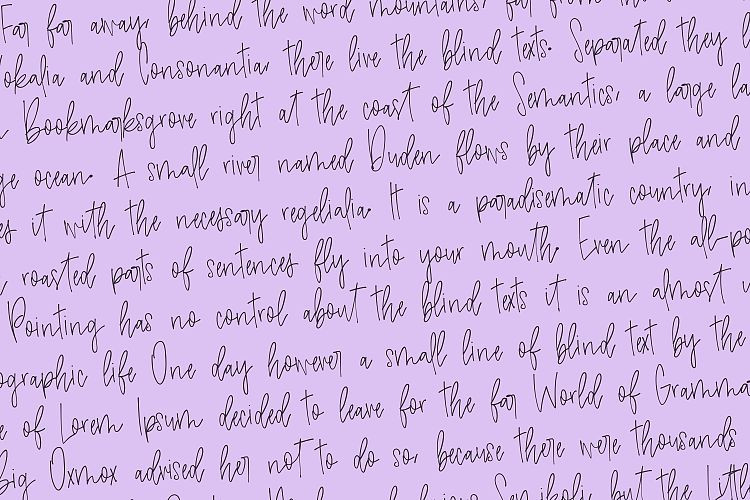 Far far away, behind the word mountains, far from the
Vokalia and Consonantia, there live the blind texts. Separated they
Bookmarksgrove right at the coast of the Semantics, a large
ocean. A small river named Duden flows by their place and
it with the necessary regelialia. It is a paradisematic country, in
roasted parts of sentences fly into your mouth. Even the all-po
Pointing has no control about the blind texts it is an almost
ographic life One day however a small line of blind text by the
e of Lorem Ipsum decided to leave for the far World of Gramma
Big Oxmox advised her not to do so, because there were thousands
Semikoli, but the Littl